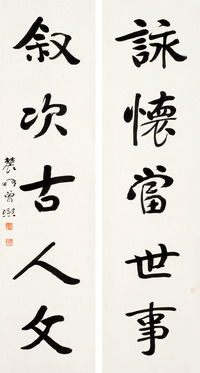 詠懷當世事
敘次古人文
農髯曾熙